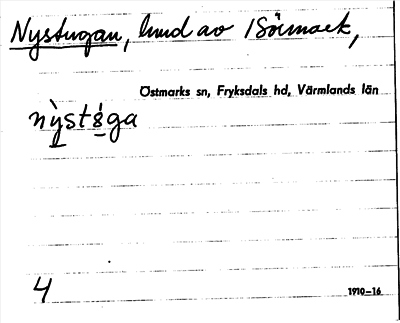 Nystugan, hmd av 1 Sörmark,
Östmarks sn, Fryksdals hd, Värmlands län
nỳstǵga
4
1910–16